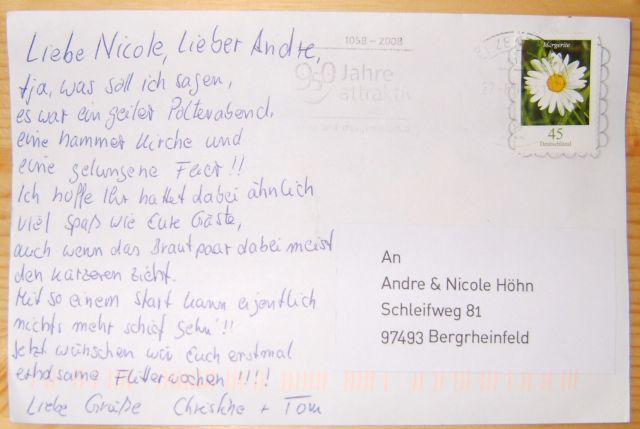 Liebe Nicole, Lieber Andre,
tja, was soll ich sagen,
es war ein geiler Polterabend,
eine hammer Kirche und
eine gelungene Feier!!
Ich hoffe Ihr hattet dabei ähnlich
viel Spaß wie Eure Gäste,
auch wenn das Brautpaar dabei meist
den kürzeren zieht.
Mit so einem Start kann eigentlich
nichts mehr schief gehn'!!
Jetzt wünschen wir Euch erstmal
erholsame Flitterwochen !!!!
Liebe Grüße Christine + Tom
1058 – 2008
950 Jahre
attraktiv
Margerite
45
Deutschland
An
Andre & Nicole Höhn
Schleifweg 81
97493 Bergrheinfeld